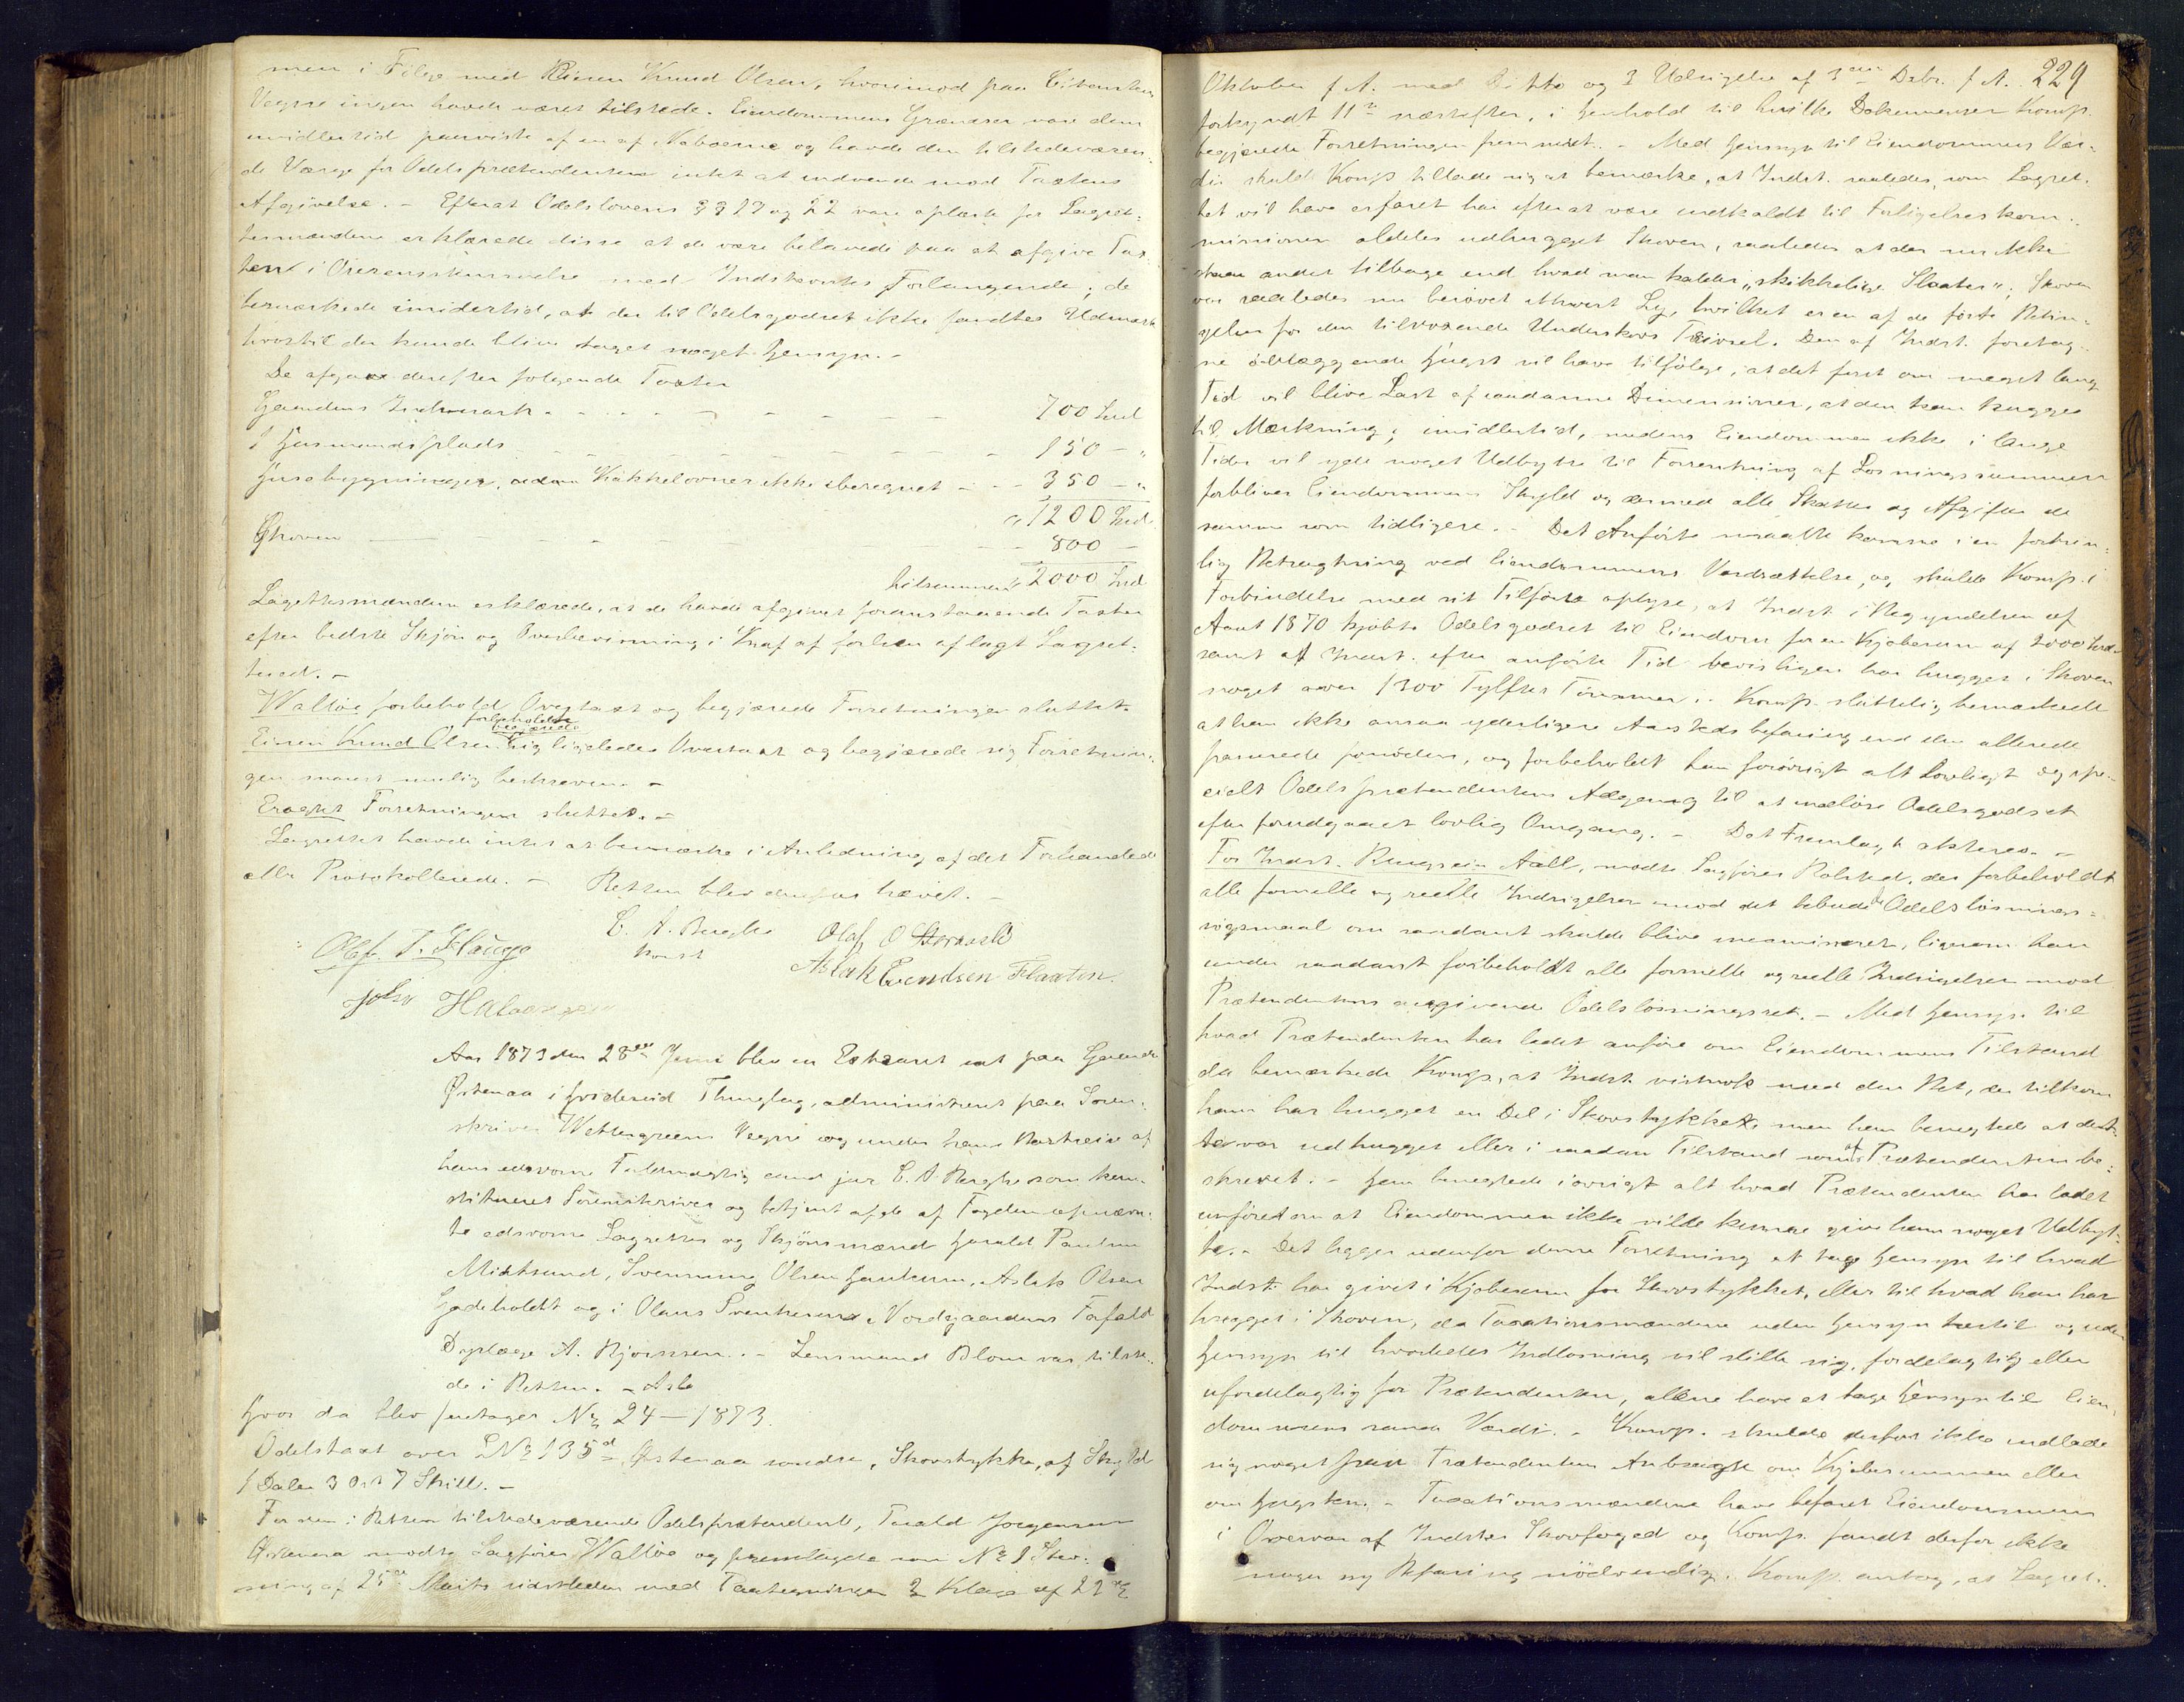 men i Følge med Eieren Knud Olsen, hvorimod paa Citantens
Vegne ingen havde været tilstede. Eiendommens Grændser vare dem
imidlertid paaviste af en af Naboerne og havde den tilstedeværen-
de Værge for Odelsprætendenten intet at indvende mod Taxtens
Afgivelse. - Efterat Odelslovens §§ 27 og 22 vare oplæste for Lagret-
tesmændene erklærede disse at de vare belavede paa at afgive Tax-
ten i Overensstemmelse med Indstevntes Forlangende; de
bemærkede imidertid, at der til Odelsgodset ikke fandtes Udmark
hvortil der kunde blive taget noget Hensyn. -
De afgave derefter følgende Taxter
Gaardens Indmark - - - - - - - 700 Spd
1 Husmandsplads - - - - - - - 150 - "
Husebygninger, uden Kakkelovner ikke beregnet - - 350 - "
1200 Spd.
Skoven - - - - - - 800 -
tilsammen 2000 Spd
Lagrettesmændene erklærede, at de havde afgivet foranstaaende Taxter
efter bedste Skjøn og Overbevisning i Kraf af forhen aflagt Lagret-
tesed. -
Walløe forbeholdt Overtaxt og begjærede Forretningen sluttet.
forbeholdte
Eieren Knud Olsen begjærede sig ligeledes Overtaxt og begjærede sig Forretnin-
gen snarest mulig beskreven. -
Eragtet Forretningen sluttet. -
Lagrettet havde intet at bemærke i Anledning af det Forhandlede
eller Protokollerede. - Retten blev derefter hævet. -
C. A. Berghe Olaf O
Olef. T. Hauge Konst Aslak Evendsen Flaaten.
John
Aar 1873 den 28de Juni blev en Extraret sat paa Gaarden
Østenaa i Hvideseid Thinglag, administreret paa Soren-
skriver Wettergreens Vegne og under hans Bortreise af
hans edsvorne Fuldmægtig cand jur C. A. Berghe som kon-
stitueret Sorenskriver og betjent af de af Fogden opnævn-
te edsvorne Lagrettes og Skjønsmænd Harald Paulsen
Midtsund, Svenning Olsen Haukum, Aslak Olsen
Gjødeholdt og i Olaus Svenkesens Nordgaardens Forfald
Dyrlæge A. Bjørnsen. - Lensmand Blom var tilste-
de i Retten. -
Hvor da blev foretaget No 24 - 1873.
Odelstaxt over LNo 135d Østenaa søndre, Skovstykke, af Skyld
1 Daler 3 Ort 7 Skill. -
For den i Retten tilstedeværende Odelsprætendent, Tarald Jørgensen
Østenaa mødte Sagfører Walløe og fremlagde som No 1 Stev-
ning af 25de Marts sidstleden med Paategninger 2 Klage af 22de
229
Oktober f A. med Ditto og 3 Udsigelse af 3die Debr. f A.
forkyndt 11te næstefter, i Henhold til hvilke Dokumenter Komp.
begjærede Forretningen fremmet. - Med Hensyn til Eiendommens Vær-
di skulde Komp tillade sig at bemærke, at Indst. saaledes, som Lagret-
tet vil have erfaret har efterat være indkaldt til Forligelseskom-
missionen aldeles udhugget Skoven, saaledes at der nu ikke
staar andet tilbage end hvad man kalder „skikkelige Slaater"; Skoven
var saaledes nu berøvet ethvert Ly, hvilket er en af de første Betin-
gelser for den tilvoxende Underskovs Trivsel. Den af Indst. foretag-
ne ødelæggende Hugst vil have tilfølge, at det først om meget lang
Tid vil blive Last af saadanne Dimensioner, at den kan hugges
til Mærkning; imidlertid, medens Eiendommen ikke i lange
Tider vil yde noget Udbytte til Forrentning af Løsningssummen
forbliver Eiendommens Skyld og dermed alle Skatter og Afgifter de
samme som tidligere. - Det Anførte maatte komme i en fortrin-
lig Betragtning ved Eiendommens Værdsættelse, og skulde Komp. i
Forbindelse med sit Tilførte oplyse, at Indst. i Begyndelsen af
Aaret 1870 kjøbte Odelsgodset til Eiendom for en Kjøbesum af 2000 Spd.
samt at Indst. efter anførte Tid bevisligen har hugget i Skoven
noget over 1300 Tylfter Tømmer. Komp. sluttelig bemærkede
at han ikke ansaa yderligere Aastedsbefaring end den allerede
passerede fornøden, og forbeholdt han forøvrigt alt Lovligt og spe-
cielt Odelsprætendentens Adgang til at indløse Odelsgodset
efter forudgaaet lovlig Omgang. - Det Fremlagte akteres. -
For Indst. Aall, mødte Sagfører Rolsted, der forbeholdt
alle formelle og reelle Indsigelser mod det bebudede Odelsløsnings-
søgsmaal om saadant skulde blive incamineret, ligesom han
under saadant forbeholdt alle formelle og reelle Indsigelser mod
Prætendentens angivende Odelsløsningsret. - Med Hensyn til
hvad Prætendenten har ladet anføre om Eiendommens Tilstand
da bemærkede Komp., at Indst. vistnok med den Ret, der tilkom
ham har hugget en Del i Skovstykket men han benegtede at det-
te var udhugget eller i saadan Tilstand som af Prætendenten be-
skrevet. - Han benegtede iøvrigt alt hvad Prætendenten har ladet
anføret om at Eiendommen ikke vilde kunne give ham noget Udbyt-
te. - Det ligger udenfor denne Forretning at tage Hensyn til hvad
Indst. har givet i Kjøbesum for Skovstykket, eller til hvad han har
hugget i Skoven, da Taxationsmændene uden Hensyn hertil og uden
Hensyn til hvorledes Indløsning vil stille sig, fordelagtig eller
ufordelagtig for Prætendenten, allene have at tage Hensyn til Eien-
dommens sande Værdi. - Komp. skulde derfor ikke indlade
sig noget paa Prætendentens Anbragte om Kjøbesummen eller
om Hugsten. - Taxationsmændene have befaret Eiendommen
i Overvær af Indstes Skovfoged og Komp. fandt derfor ikke
nogen ny Befaring nødvendig. Komp. antog, at Lagret-